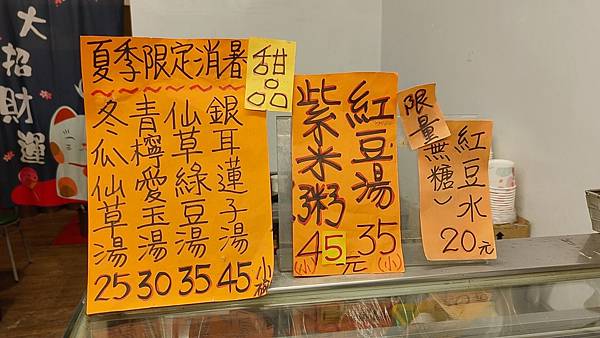 大招財運
夏季限定消暑
甜品
銀耳蓮子湯45
仙草綠豆湯35
青檸愛玉湯30
冬瓜仙草湯25
小碗
紅豆湯35
(小)
紫米粥45元
(小)
限量
無糖)
紅豆水
20元